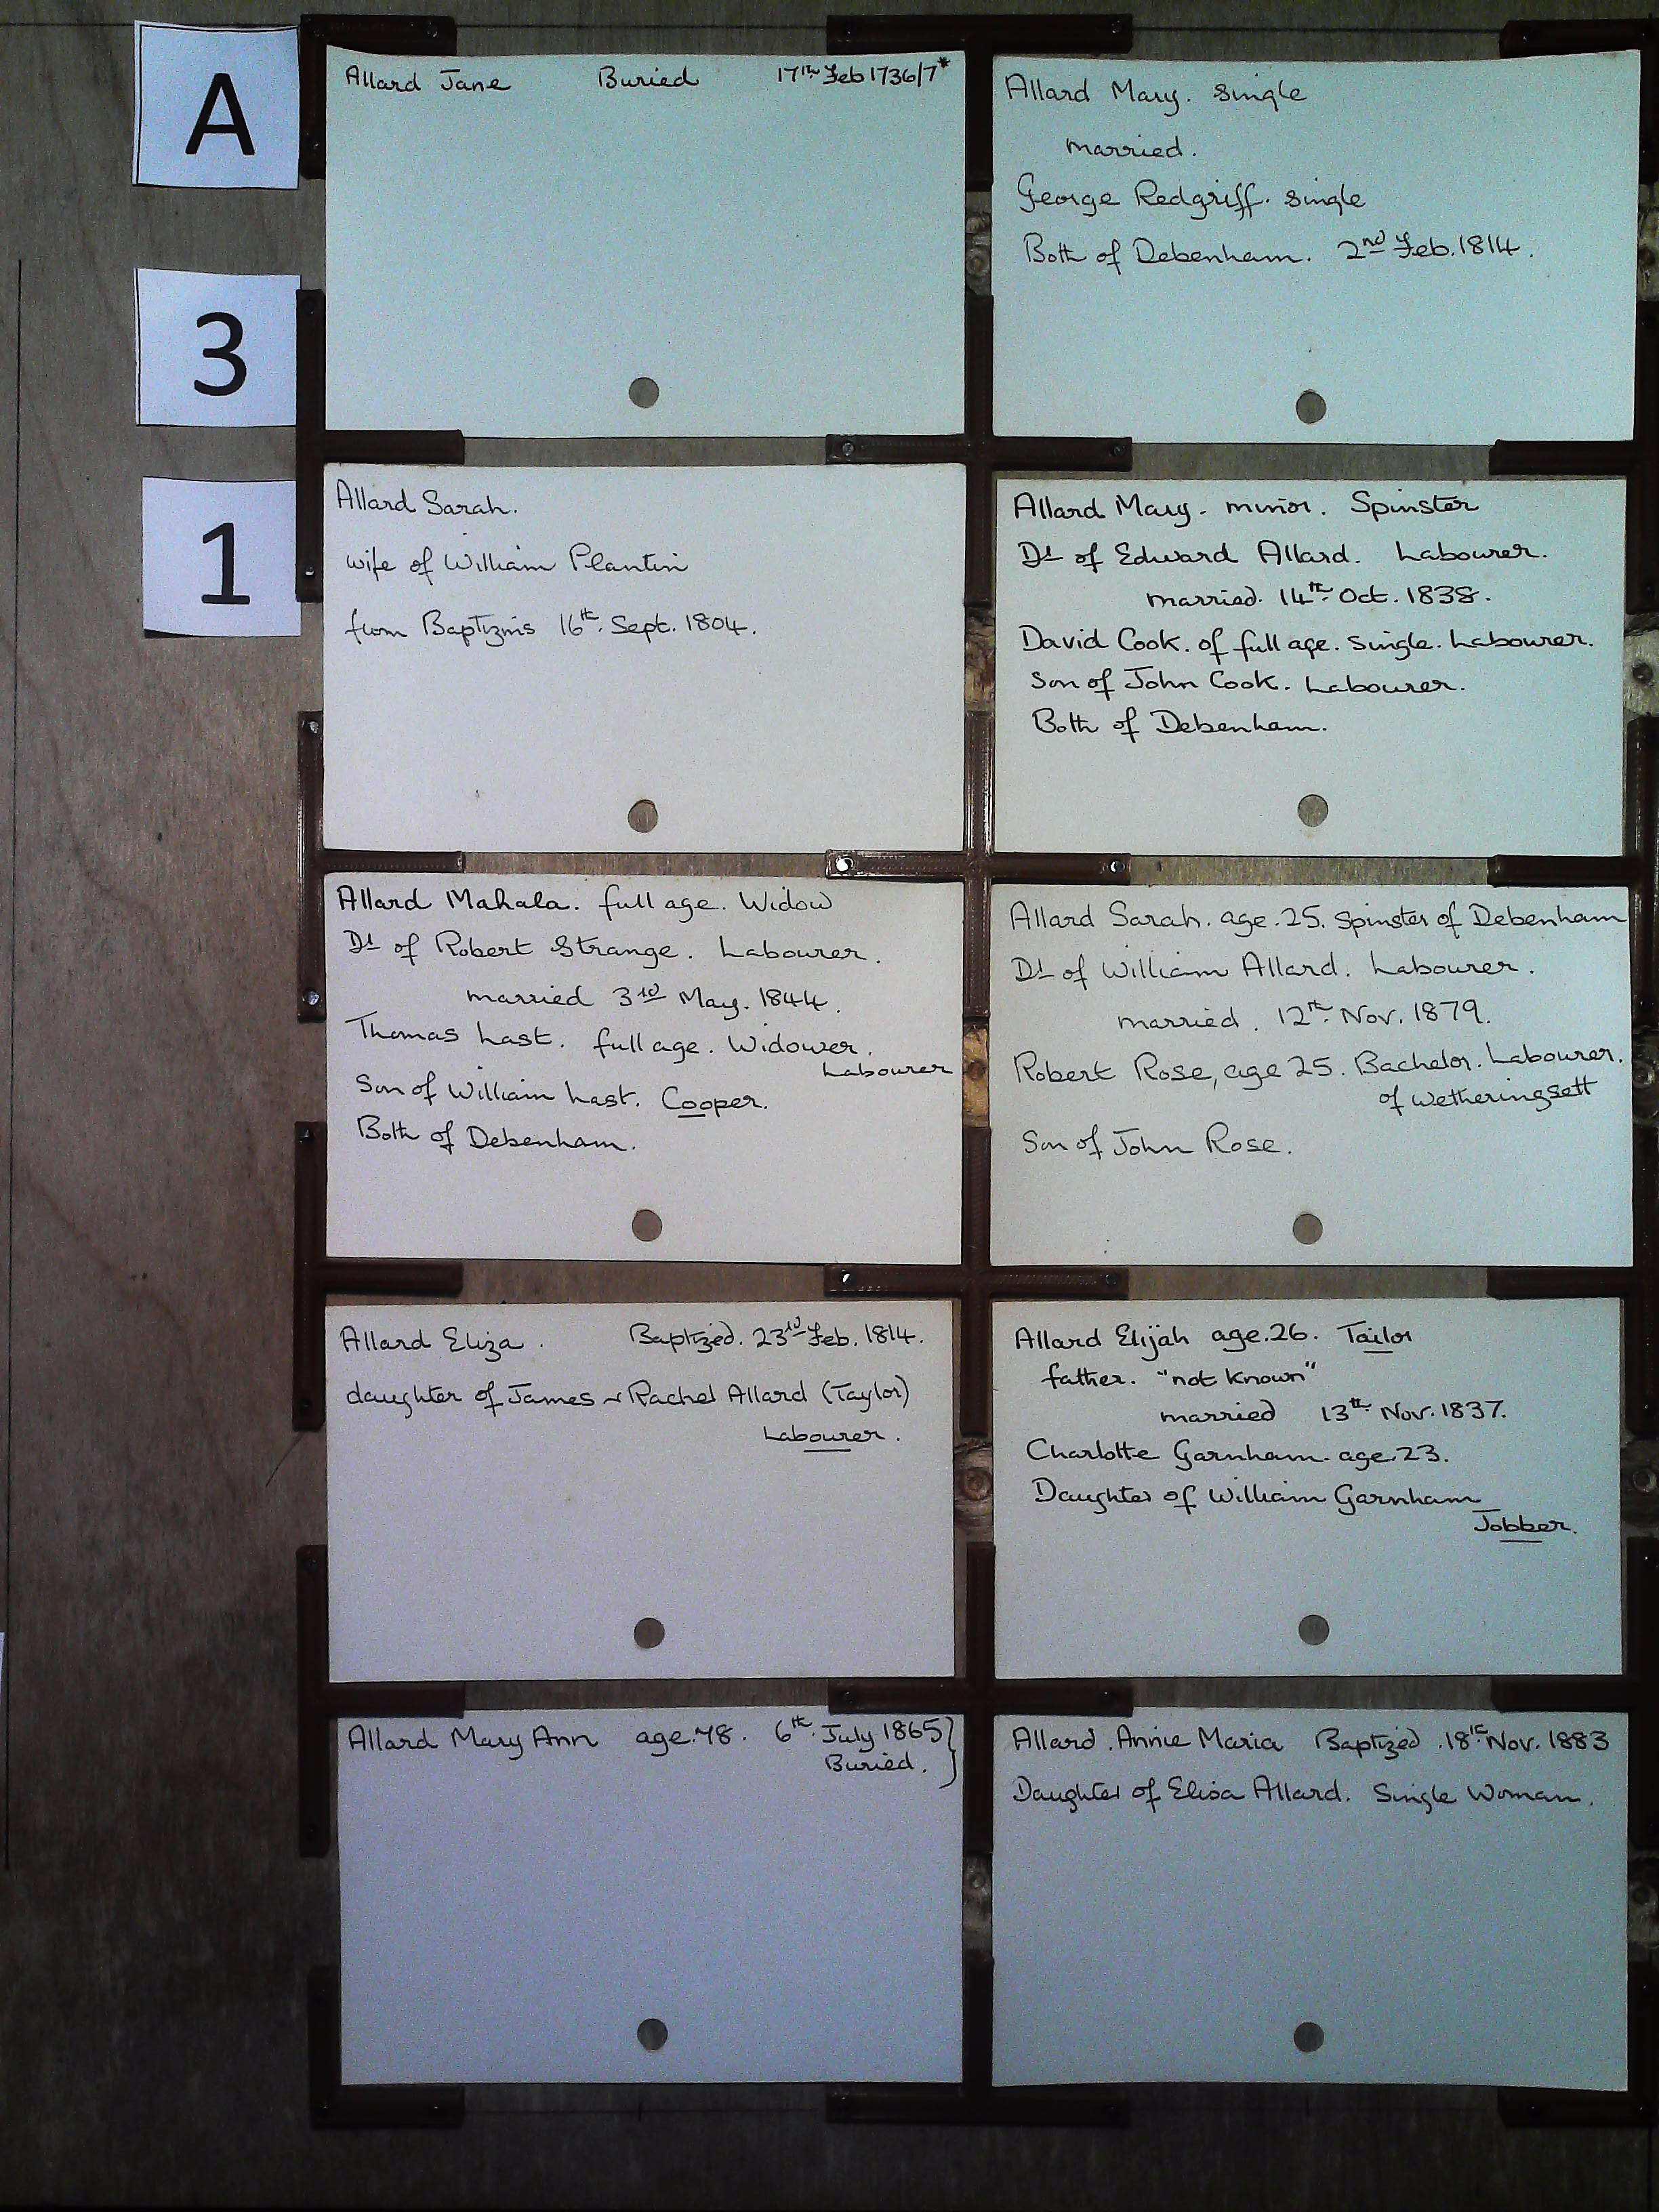 A
3
1
Allard Jane Buried 17th Feb 1736/7*
Allard Mary. Single
married.
George Redgriff. Single
Both of Debenham. 2nd Feb. 1814.
Allard Sarah.
wife of William Plantin
from Baptizms 16th. Sept. 1804.
Allard Mary - minor. Spinster
Dt of Edward Allard. Labourer.
married. 14th Oct. 1838.
David Cook. of full age. Single. Labourer.
Son of John Cook. Labourer.
Both of Debenham.
Allard Mahala. full age. Widow
Dt of Robert Strange. Labourer.
married 3rd May. 1844.
Thomas Last. full age. Widower.
Labourer
Son of William Last. Cooper.
Both of Debenham.
Allard Sarah. age. 25. Spinster of Debenham
Dt of William Allard. Labourer.
married. 12th Nov. 1879.
Robert Rose, age 25. Bachelor. Labourer.
of Wetheringsett
Son of John Rose.
Allard Eliza. Baptized. 23rd Feb. 1814.
daughter of James & Rachel Allard (Taylor)
Labourer.
Allard Elijah age. 26. Tailor
father. "not known"
married 13th Nov. 1837.
Charlotte Garnham. age. 23.
Daughter of William Garnham
Jobber.
Allard Mary Ann age. 48. 6th. July 1865
Buried.
Allard. Annie Maria Baptized. 18th Nov. 1883
Daughter of Elisa Allard. Single Woman.